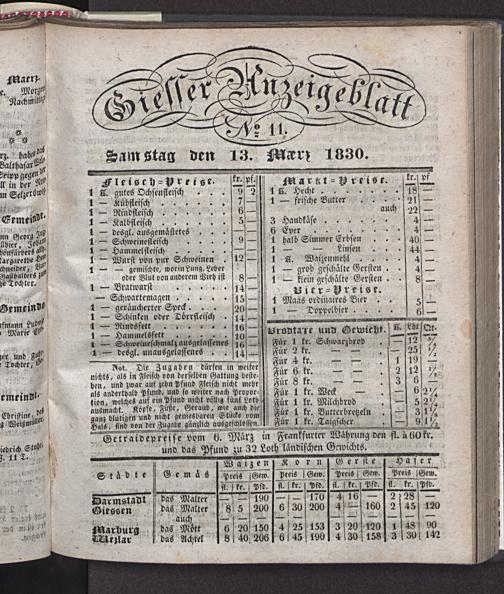 Giesser Anzeigeblatt
No 11.
Samstag den 13. Maerz 1830.
Fleisch-Preise. kr. pf.
1 ℔. gutes Ochsenfleisch 9 2
1 — Kuhfleisch 7
1 — Rindfleisch 6
1 — Kalbfleisch 5
1 — desgl. ausgemästetes —
1 — Schweinefleisch 9
1 — Hammelfleisch —
1 — Wurst von pur Schweinen 12 —
1 — gemischte, worin Lung, Leber
oder Blut von anderem Vieh ist 8 —
1 — Bratwurst 14
1 — Schwartemagen 15
1 — geräucherter Speck 20
1 — Schinken oder Dörrfleisch 14
1 — Rindsfett 16
1 — Hammelsfett 10
1 — Schweineschmalz ausgelassenes 16
1 — desgl. unausgelassenes 14
Not. Die Zugaben dürfen in weiter
nichts, als in Fleisch von derselben Gattung beste-
hen, und zwar auf zehn Pfund Fleisch nicht mehr
als anderthalb Pfund, und so weiter nach Propor-
tion, welches auf ein Pfund nicht völlig fünf Loth
ausmacht. Köpfe, Füße, Geraub, wie auch die
ganz blutigen und nicht geniesbaren Stücke vom
Hals, sind von der Zugabe gänzlich ausgeschlossen.
Markt-Preise. kr. pf
1 ℔. Hecht 18
1 — frische Butter 21
auch 22
3 Handkäse 4
6 Eyer 4
1 halb Simmer Erbsen 40
1 — — Linsen 44
1 ℔. Waizenmehl 4
1 — grob geschälte Gersten 4
1 — klein geschälte Gersten 8
Bier-Preise.
1 Maas ordinaires Bier 5
1 — Doppelbier 6
Brodtaxe und Gewicht. ℔. Lht Qt.
Für 1 kr. Schwarzbrod — 12
Für 2 kr. — — — 25
Für 4 kr. — — 1 19
Für 6 kr. — — 2 12
Für 8 kr. — — 3 6
Für 1 kr. Weck — 6
Für 1 kr. Milchbrod — 5
Für 1 kr. Butterbretzeln — 3
Für 1 kr. Taigscher — 9
Getraidepreise vom 6. März in Frankfurter Währung den fl. à 60 kr.
und das Pfund zu 32 Loth ländischen Gewichts.
Städte Gemäs Waizen Korn Gerste Hafer
Preis Gew. Preis Gew. Preis Gew. Preis Gew.
fl. kr. Pfd. fl. kr. Pfd. fl. kr. Pfd. fl. kr. Pfd.
Darmstadt das Malter — — 190 — — 170 4 16 — 2 28 —
Giessen das Malter 8 5 200 6 30 200 4 — 160 2 45 120
— auch — — — — — — — — — — — —
Marburg das Mött 6 20 150 4 25 153 3 20 120 1 48 90
Wetzlar das Achtel 8 40 206 6 45 190 4 30 158 3 30 142